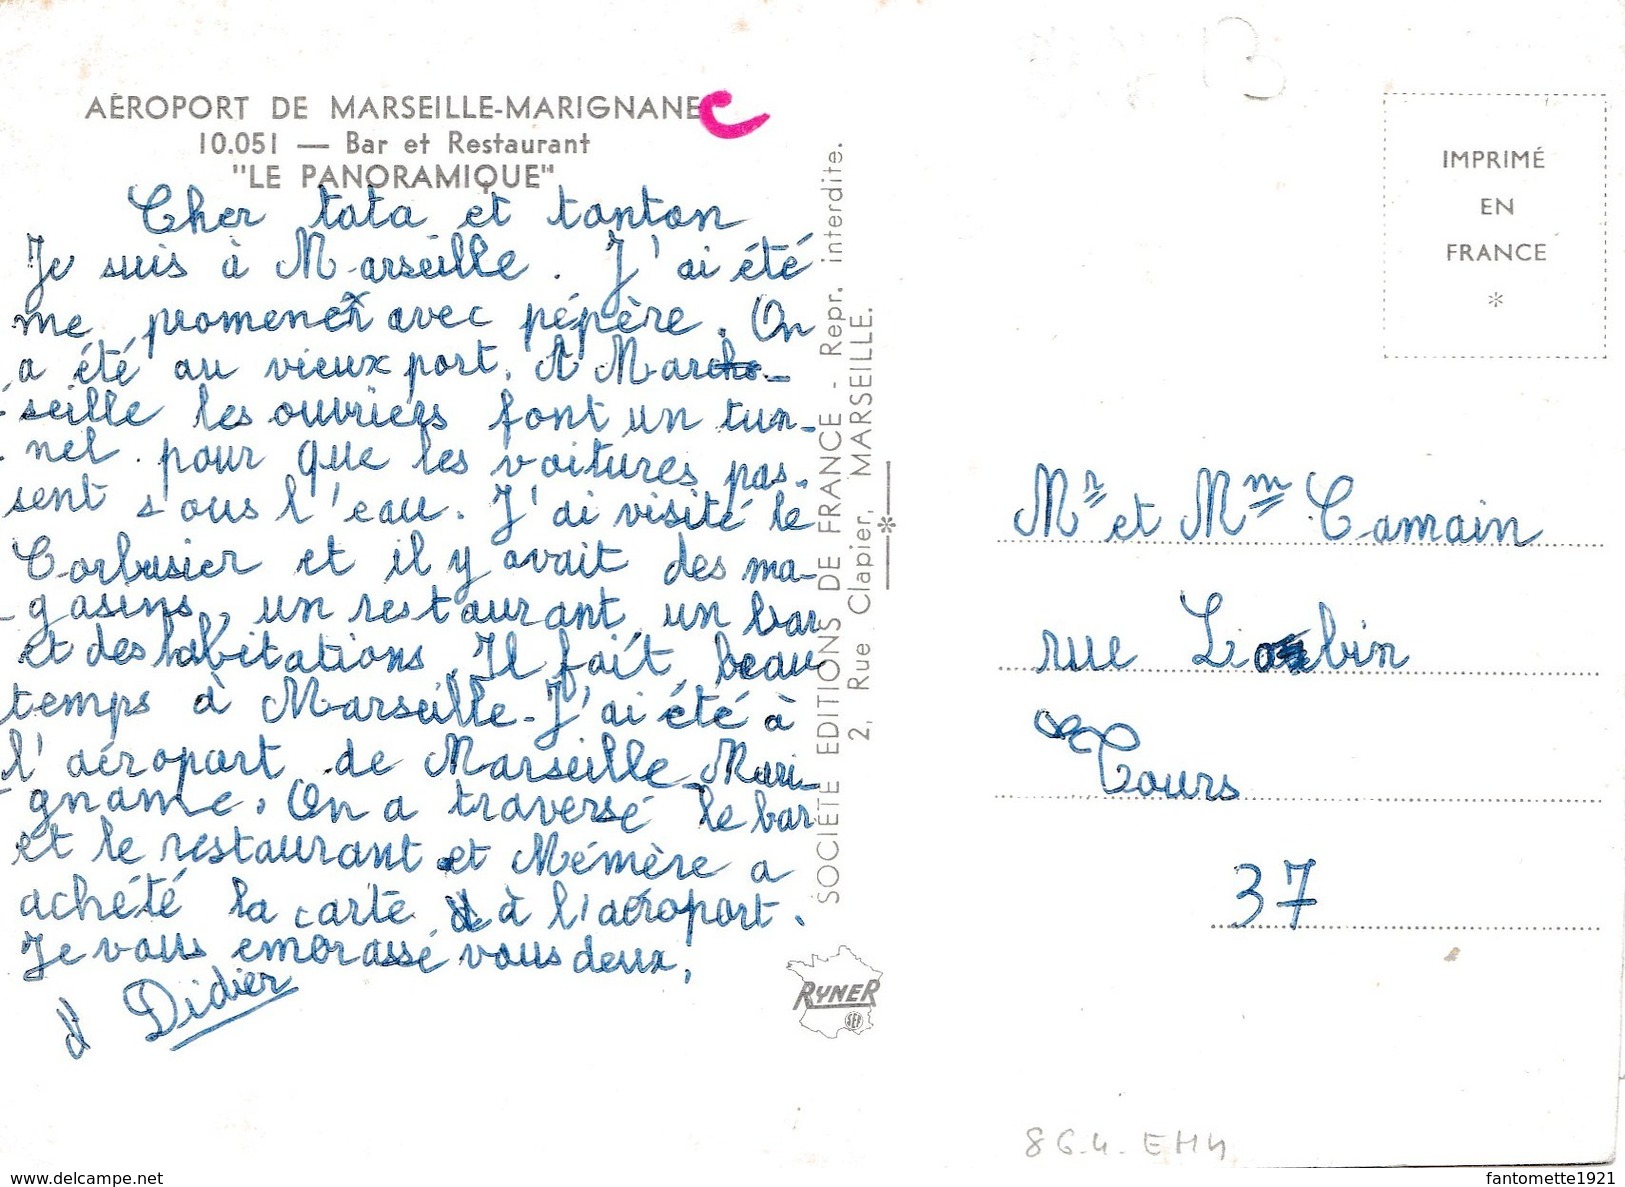 AÉROPORT DE MARSEILLE-MARIGNANE
10.051 — Bar et Restaurant
"LE PANORAMIQUE"
Cher tata et tonton
Je suis à Marseille. J'ai été
me promener avec pépère. On
a été au vieux port. A Mar-
seille les ouvriers font un tun-
nel pour que les voitures pas-
sent sous l'eau. J'ai visité le
Corbusier et il y avait des ma-
gasins, un restaurant un bar
et des habitations. Il fait beau
temps à Marseille. J'ai été à
l'aéroport de Marseille Mari-
gnane. On a traversé le bar
et le restaurant et Mémère a
achété la carte à l'aéroport.
Je vous embrasse vous deux.
Didier
SOCIÉTÉ EDITIONS DE FRANCE - Repr. interdite.
2, Rue Clapier, MARSEILLE.
RYNER
SEF
IMPRIMÉ
EN
FRANCE
*
Mr et Mm Camain
rue
Tours
37
86.4. EM4
fantomette1921
www.delcampe.net